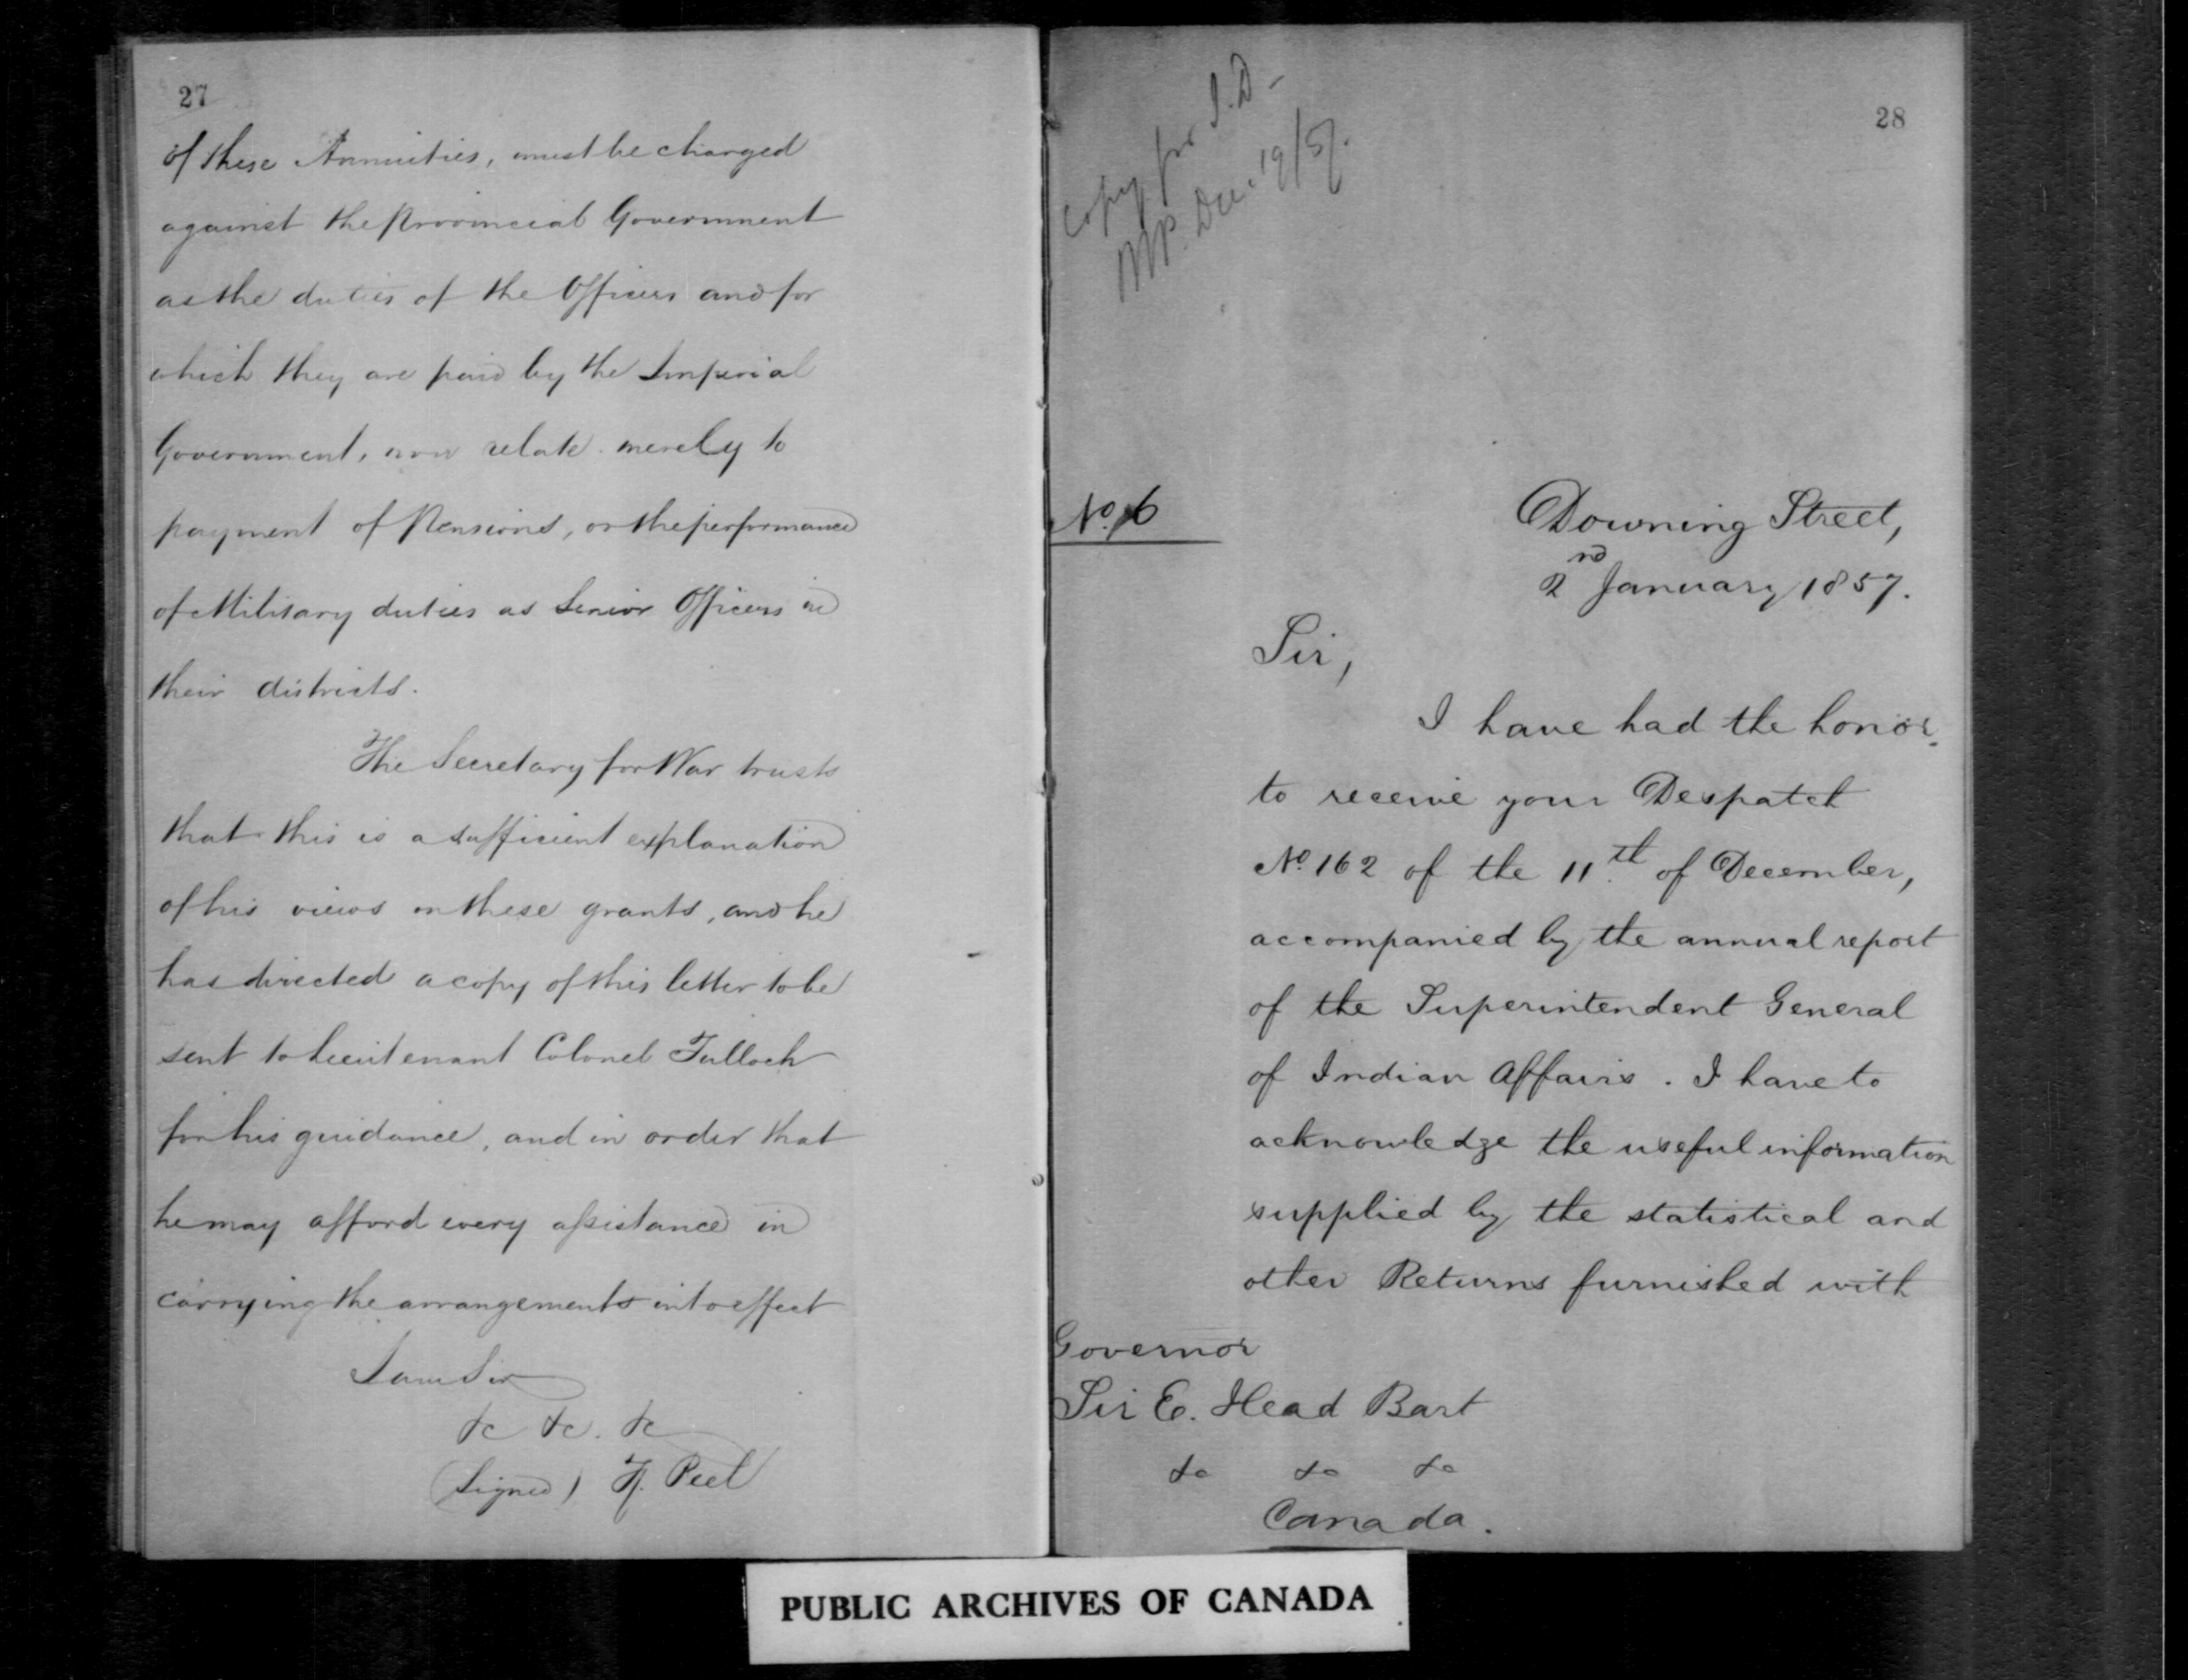 27
of these Annuities, must be charged
against the Provincial Government
as the duties of the Officers and for
which they are paid by the Imperial
Government, now relate merely to
payment of Pensions, or the performance
of Military duties as Senior Officers in
their districts.
The Secretary for War trusts
that this is a sufficient explanation
of his views on these grants, and he
has directed a copy of this letter to be
sent to Lieutenant Colonel Tulloch
for his guidance, and in order that
he may afford every assistance in
carrying the arrangements into effect
I am Sir
&c &c. &c
(Signed) F. Peel
28
Copy for I.D -
Dec. 19/57.
No. 6
Downing Street,
2nd January 1857.
Sir,
I have had the honor
to receive your Despatch
No. 162 of the 11th of December,
accompanied by the annual report
of the Superintendent General
of Indian Affairs. I have to
acknowledge the useful information
supplied by the statistical and
other Returns furnished with
Governor
Sir E. Head Bart
&c &c &c
Canada.
PUBLIC ARCHIVES OF CANADA